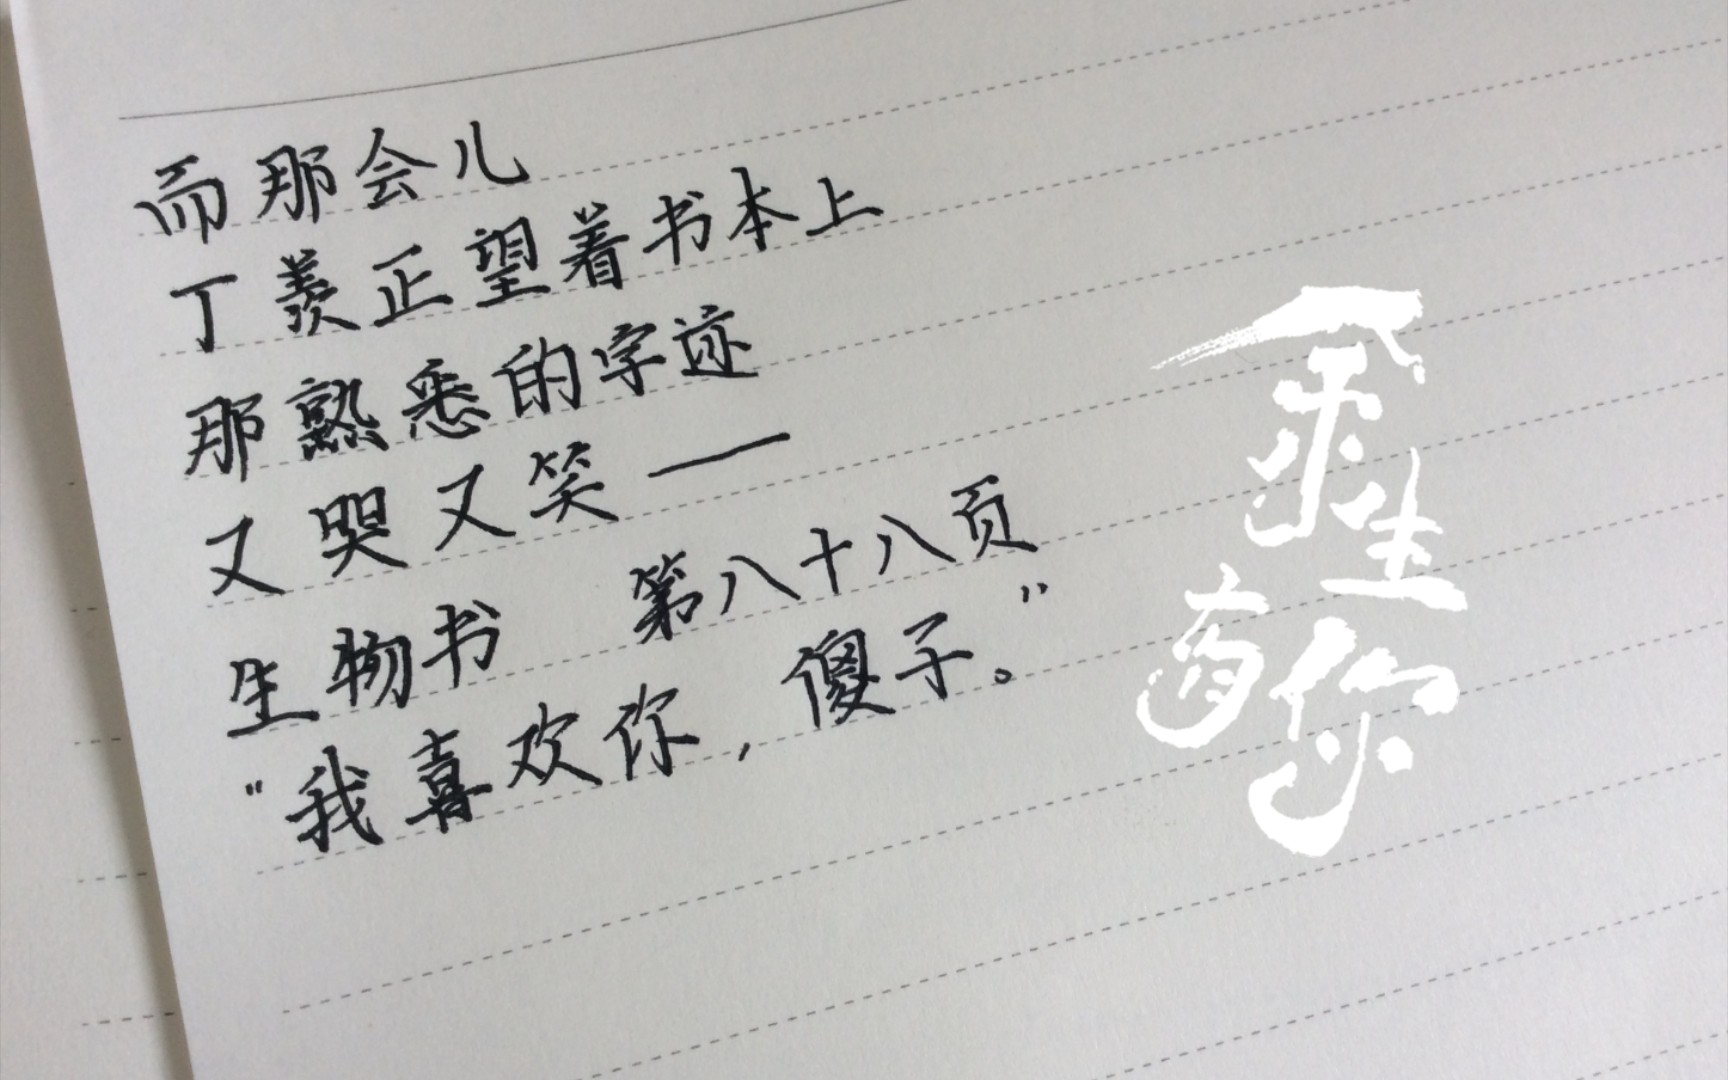 而那会儿
丁羡正望着书本上
那熟悉的字迹
又哭又笑——
生物书 第八十八页
“我喜欢你，傻子。”
余生
有你